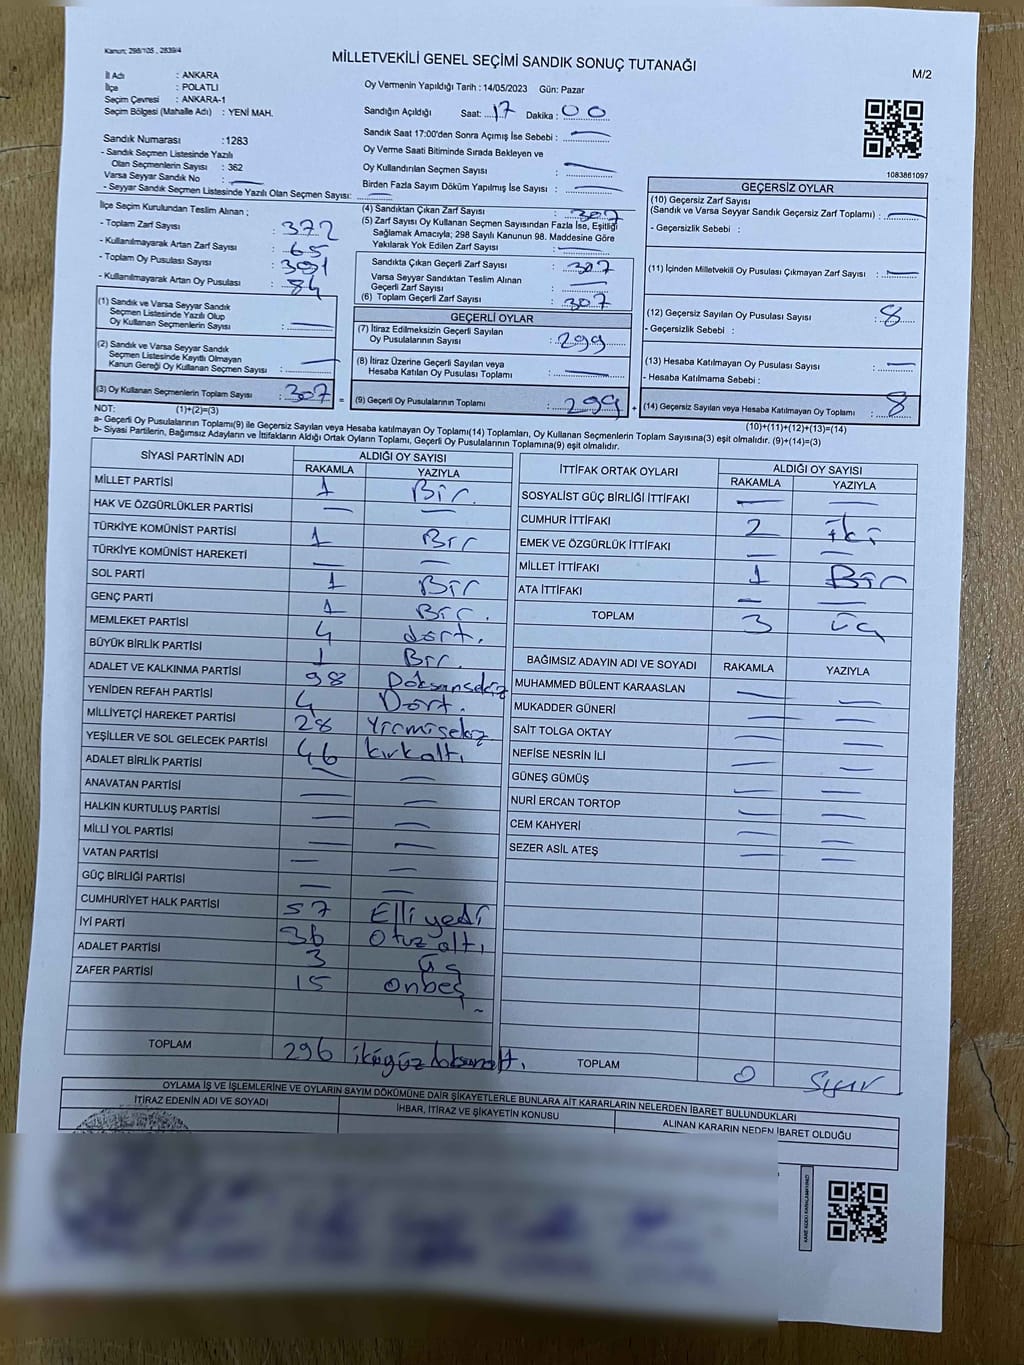 Kanun; 298/105 , 2839/4
MİLLETVEKİLİ GENEL SEÇİMİ SANDIK SONUÇ TUTANAĞI
M/2
İl Adı : ANKARA
İlçe : POLATLI
Seçim Çevresi : ANKARA-1
Seçim Bölgesi (Mahalle Adı) : YENİ MAH.
Sandık Numarası :1283
- Sandık Seçmen Listesinde Yazılı
Olan Seçmenlerin Sayısı : 362
Varsa Seyyar Sandık No : —
- Seyyar Sandık Seçmen Listesinde Yazılı Olan Seçmen Sayısı:
Oy Vermenin Yapıldığı Tarih : 14/05/2023 Gün: Pazar
Sandığın Açıldığı Saat: 17 Dakika : 00
Sandık Saat 17:00'den Sonra Açımış İse Sebebi : —
Oy Verme Saati Bitiminde Sırada Bekleyen ve
Oy Kullandırılan Seçmen Sayısı : —
Birden Fazla Sayım Döküm Yapılmış İse Sayısı : —
1083861097
İlçe Seçim Kurulundan Teslim Alınan ;
- Toplam Zarf Sayısı : 372
- Kullanılmayarak Artan Zarf Sayısı : 65
- Toplam Oy Pusulası Sayısı : 391
- Kullanılmayarak Artan Oy Pusulası : 84
(1) Sandık ve Varsa Seyyar Sandık
Seçmen Listesinde Yazılı Olup
Oy Kullanan Seçmenlerin Sayısı : —
(2) Sandık ve Varsa Seyyar Sandık
Seçmen Listesinde Kayıtlı Olmayan
Kanun Gereği Oy Kullanan Seçmen Sayısı : —
(3) Oy Kullanan Seçmenlerin Toplam Sayısı : 307 =
(1)+(2)=(3)
(4) Sandıktan Çıkan Zarf Sayısı : 307
(5) Zarf Sayısı Oy Kullanan Seçmen Sayısından Fazla İse, Eşitliği
Sağlamak Amacıyla; 298 Sayılı Kanunun 98. Maddesine Göre
Yakılarak Yok Edilen Zarf Sayısı : —
Sandıkta Çıkan Geçerli Zarf Sayısı : 307
Varsa Seyyar Sandıktan Teslim Alınan
Geçerli Zarf Sayısı : —
(6) Toplam Geçerli Zarf Sayısı : 307
GEÇERLİ OYLAR
(7) İtiraz Edilmeksizin Geçerli Sayılan
Oy Pusulalarının Sayısı : 299
(8) İtiraz Üzerine Geçerli Sayılan veya
Hesaba Katılan Oy Pusulası Toplamı : —
(9) Geçerli Oy Pusulalarının Toplamı : 299 +
GEÇERSİZ OYLAR
(10) Geçersiz Zarf Sayısı
(Sandık ve Varsa Seyyar Sandık Geçersiz Zarf Toplamı) : —
- Geçersizlik Sebebi :
(11) İçinden Milletvekili Oy Pusulası Çıkmayan Zarf Sayısı : —
(12) Geçersiz Sayılan Oy Pusulası Sayısı : 8
- Geçersizlik Sebebi :
(13) Hesaba Katılmayan Oy Pusulası Sayısı : —
- Hesaba Katılmama Sebebi :
(14) Geçersiz Sayılan veya Hesaba Katılmayan Oy Toplamı : 8
(10)+(11)+(12)+(13)=(14)
NOT:
a- Geçerli Oy Pusulaların Toplamı(9) ile Geçersiz Sayılan veya Hesaba katılmayan Oy Toplamı(14) Toplamları, Oy Kullanan Seçmenlerin Toplam Sayısına(3) eşit olmalıdır. (9)+(14)=(3)
b- Siyasi Partilerin, Bağımsız Adayların ve İttifakların Aldığı Ortak Oyların Toplamı, Geçerli Oy Pusulalarının Toplamına(9) eşit olmalıdır.
SİYASİ PARTİNİN ADI ALDIĞI OY SAYISI
RAKAMLA YAZIYLA
MİLLET PARTİSİ 1 Bir.
HAK VE ÖZGÜRLÜKLER PARTİSİ — —
TÜRKİYE KOMÜNİST PARTİSİ 1 Bir
TÜRKİYE KOMÜNİST HAREKETİ — —
SOL PARTİ 1 Bir
GENÇ PARTİ 1 Bir.
MEMLEKET PARTİSİ 4 dört.
BÜYÜK BİRLİK PARTİSİ 1 Bir.
ADALET VE KALKINMA PARTİSİ 98 Doksansekiz
YENİDEN REFAH PARTİSİ 4 Dört.
MİLLİYETÇİ HAREKET PARTİSİ 28 Yirmisekiz
YEŞİLLER VE SOL GELECEK PARTİSİ 46 kırkaltı
ADALET BİRLİK PARTİSİ — —
ANAVATAN PARTİSİ — —
HALKIN KURTULUŞ PARTİSİ — —
MİLLİ YOL PARTİSİ — —
VATAN PARTİSİ —
GÜÇ BİRLİĞİ PARTİSİ — —
CUMHURİYET HALK PARTİSİ 57 Elli yedi
İYİ PARTİ 36 Otuz altı
ADALET PARTİSİ 3 Üç
ZAFER PARTİSİ 15 onbeş
TOPLAM 296 ikiyüz doksanaltı.
İTTİFAK ORTAK OYLARI ALDIĞI OY SAYISI
RAKAMLA YAZIYLA
SOSYALİST GÜÇ BİRLİĞİ İTTİFAKI — —
CUMHUR İTTİFAKI 2 iki
EMEK VE ÖZGÜRLÜK İTTİFAKI — —
MİLLET İTTİFAKI 1 Bir
ATA İTTİFAKI — —
TOPLAM 3 üç
BAĞIMSIZ ADAYIN ADI VE SOYADI RAKAMLA YAZIYLA
MUHAMMED BÜLENT KARAASLAN — —
MUKADDER GÜNERİ — —
SAİT TOLGA OKTAY — —
NEFİSE NESRİN İLİ — —
GÜNEŞ GÜMÜŞ — —
NURİ ERCAN TORTOP — —
CEM KAHYERİ — —
SEZER ASİL ATEŞ — —
TOPLAM 0 Sıfır
OYLAMA İŞ VE İŞLEMLERİNE VE OYLARIN SAYIM DÖKÜMÜNE DAİR ŞİKAYETLERLE BUNLARA AİT KARARLARIN NELERDEN İBARET BULUNDUKLARI
İTİRAZ EDENİN ADI VE SOYADI
İHBAR, İTİRAZ VE ŞİKAYETİN KONUSU
ALINAN KARARIN NEDEN İBARET OLDUĞU